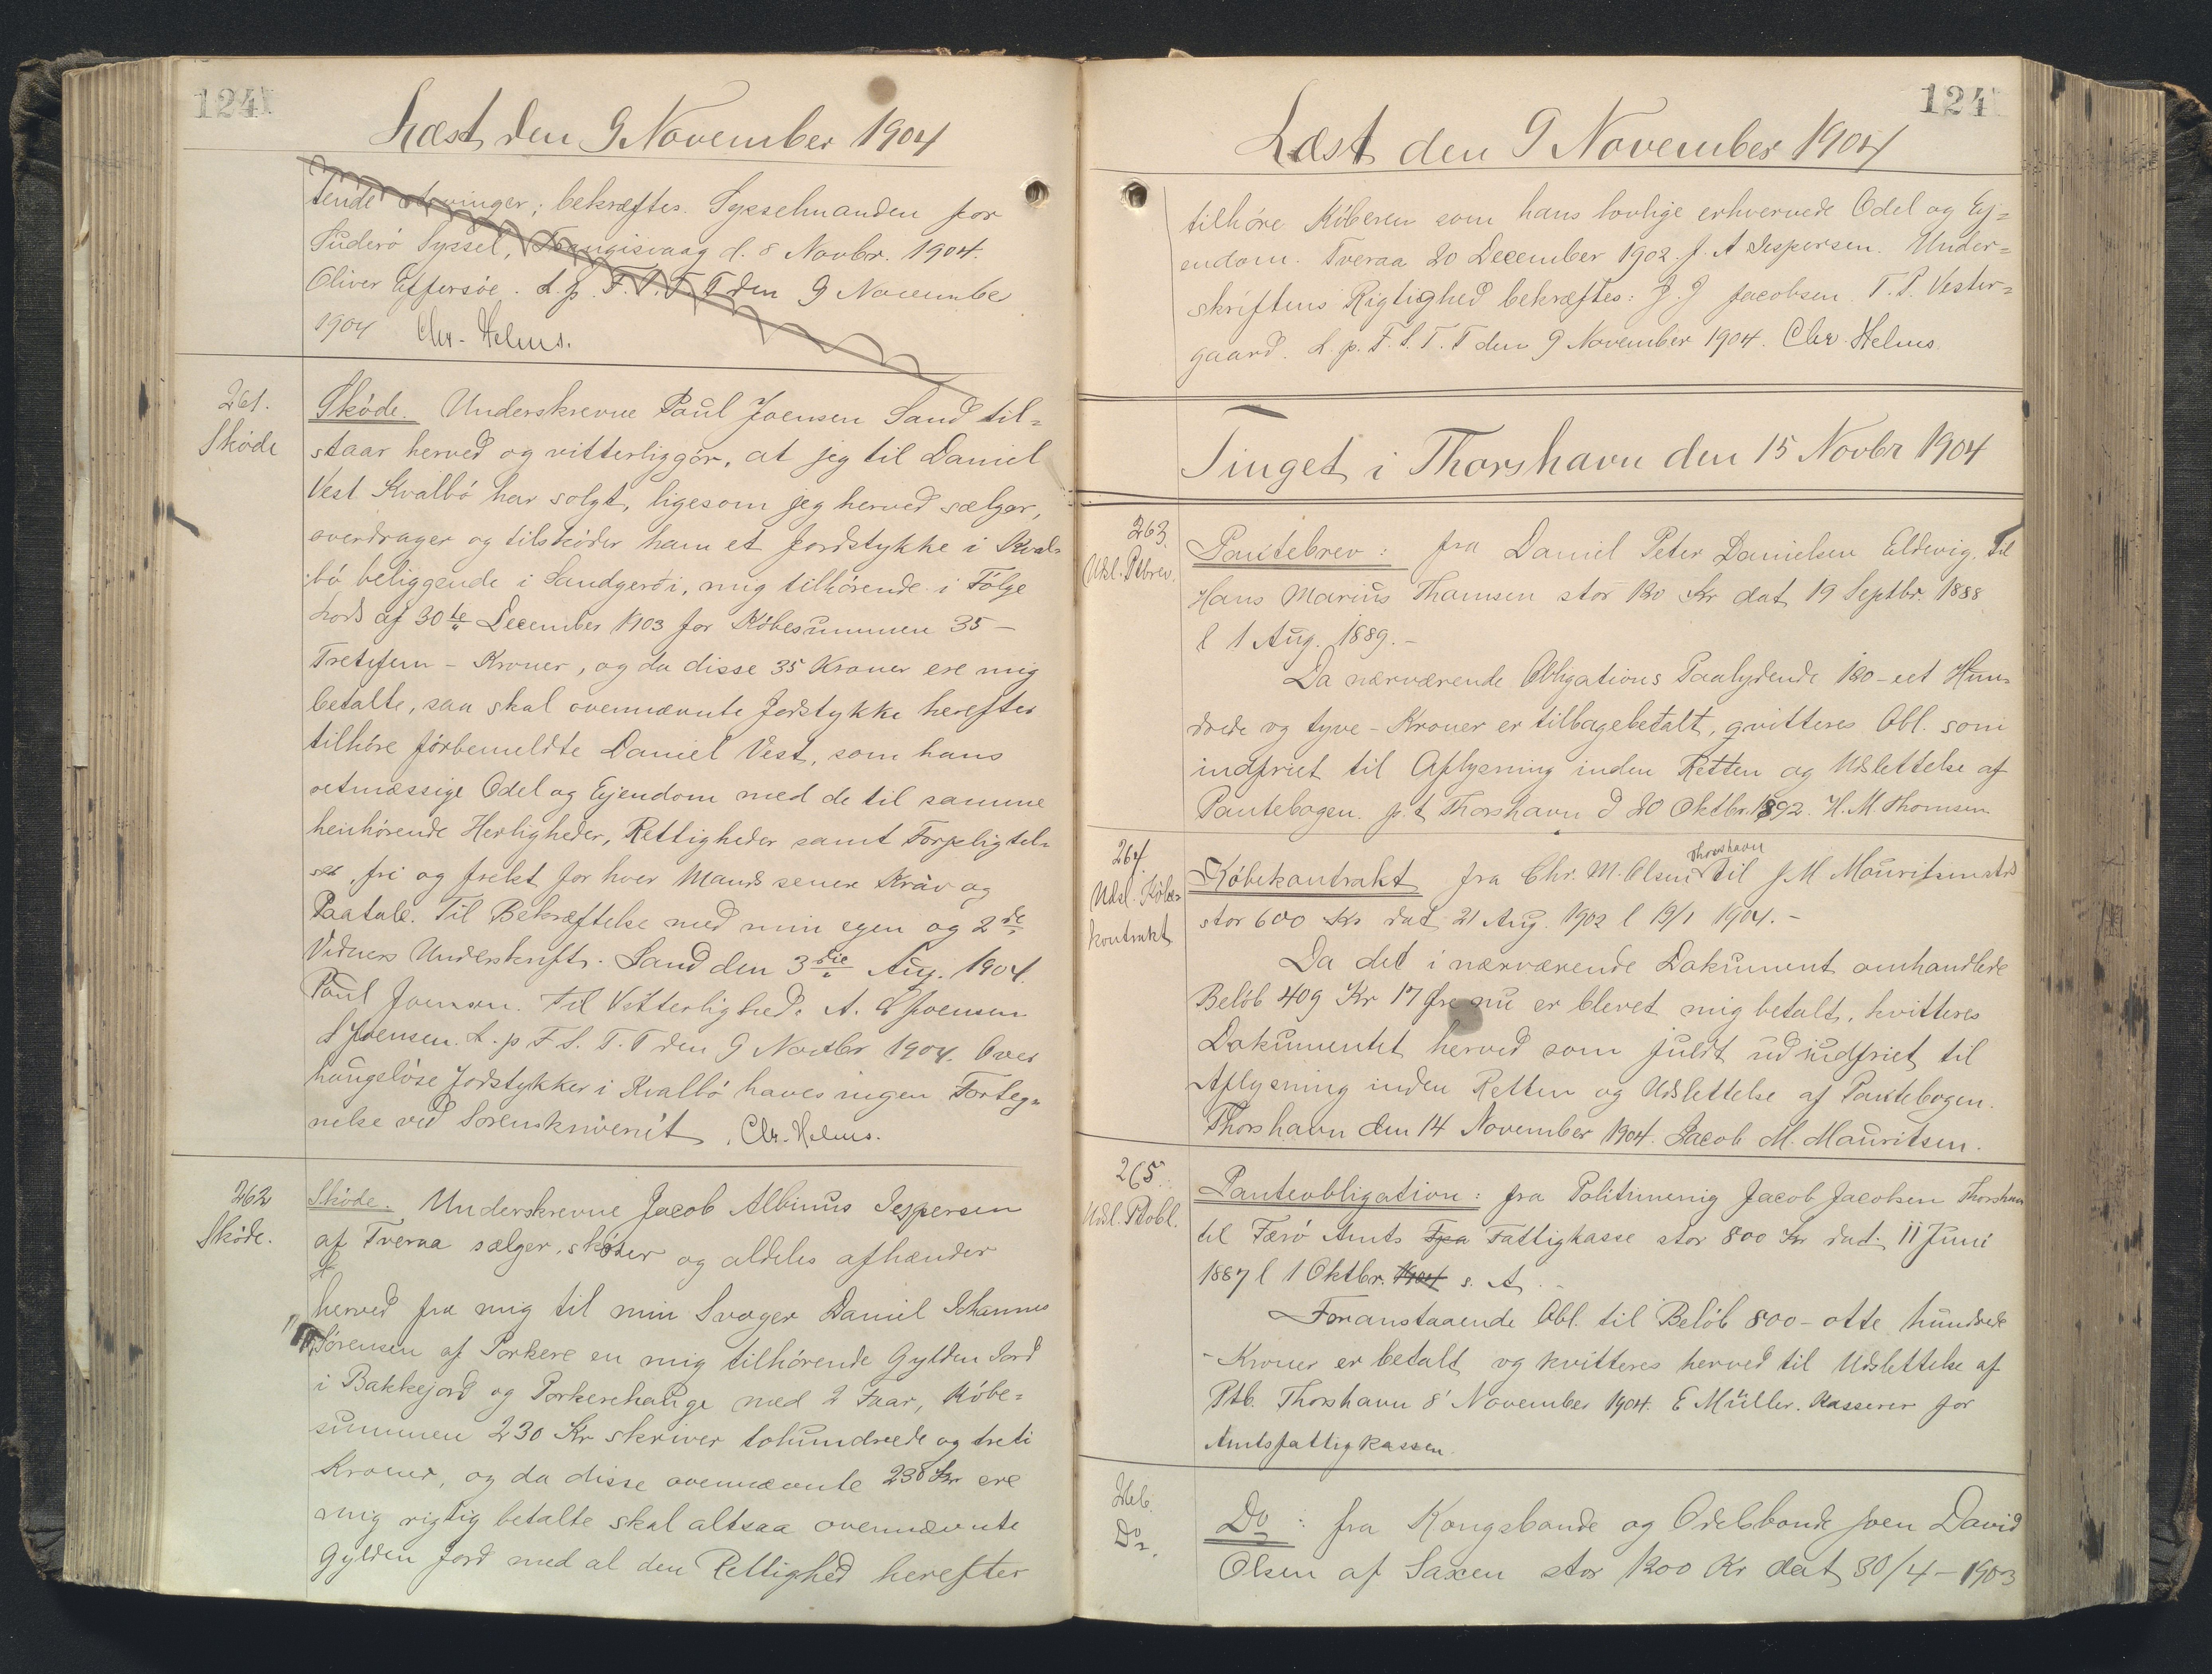 124
Læst den 9 November 1904
tende Avvinger; bekræftes. Sysselmanden for
Suderø Syssel, Trangisvaag d. 8 Novbr. 1904.
Oliver Effersøe. L. p. F. S. T. T den 9 Novembe
1904 Chr. Helms.
261.
Skøde
Skøde. Underskrevne Paul Joensen Sand til=
staar herved og vitterliggør, at jeg til Daniel
Vest Kvalbø har solgt, ligesom jeg herved sælger,
overdrager og tilskøder ham et Jordstykke i Kval=
bø beliggende i Sandgerði, mig tilhørende i Følge
af 30te December 1903 for Købesummen 35 –
Tretifem – Kroner, og da disse 35 Kroner ere mig
betalte, saa skal ovennævnte Jordstykke herefter
tilhøre førbemeldte Daniel Vest, som hans
retmæssige Odel og Ejendom med de til samme
henhørende Herligheder, Rettigheder samt Forpligtel=
ser, fri og frelst for hver Mands senere Krav og
Paatale. Til Bekræftelse med min egen og 2de
Vidners Underskrift. Sand den 3die Aug. 1904.
Paul Joensen. Til Vitterlighed: A. C Joensen
S Joensen. L. p F S. T. T den 9 Novbr 1904. Over
haugsløse Jordstykker i Kvalbø haves ingen Forteg=
nelse ved Sorenskriveriet. Chr. Helms.
262
Skøde.
Skøde. Underskrevne Jacob Albinus Jespersen
af Tveraa sælger, skøder og aldeles afhænder
herved fra mig til min Svoger Daniel Johannes
Sørensen af Porkere en mig tilhørende Gylden Jord
i Bakkejord og Porkerehauge med 2 Faar, Købe=
summen 230 Kr skriver tohundrede og treti
Kroner, og da disse ovennævnte 230 Kr ere
mig rigtig betalte skal altsaa ovennævnte
Gylden Jord med al den Rettighed herefter
124
Læst den 9 November 1904
tilhøre Køberen som hans lovlige erhvervede Odel og Ej=
endom. Tveraa 20 December 1902. J. A Jespersen. Under=
skriftens Rigtighed bekræftes: J. J Jacobsen. T. P. Vester=
gaard. L. p. F. S. T. T den 9 November 1904. Chr. Helms.
Tinget i Thorshavn den 15 Novbr 1904
263.
Udsl. Ptbrev.
Pantebrev: fra Daniel Peter Danielsen Eldevig til
Hans Marius Thomsen stor 120 Kr dat 19 Septbr. 1888
l 1 Aug. 1889. –
Da nærværende Obligations Paalydende 120 – eet Hun=
drede og tyve – Kroner er tilbagebetalt, qvitteres Obl. som
indfriet til Aflysning inden Retten og Udslettelse af
Pantebogen. p. t. Thorshavn d 20 Oktbr. 1892. H. M Thomsen
264.
Udsl. Købe=
kontrakt
Købekontrakt fra Chr. M. Olsen Thorshavn til J M Mauritsen
stor 600 Kr dat 21 Aug. 1902 l 19/1 1904. –
Da det i nærværende Dokument omhandlede
Beløb 409 Kr 17 Øre nu er blevet mig betalt, kvitteres
Dokumentet herved som fuldt ud indfriet til
Aflysning inden Retten og Udslettelse af Pantebogen.
Thorshavn den 14 November 1904. Jacob M. Mauritsen.
265.
Udsl. Ptobl.
Panteobligation: fra Politimenig Jacob Jacobsen Thorshavn
til Færø Amts Fattigkasse stor 800 Kr dat. 11 Juni
1887 l 1 Oktbr. 1904 s. A. –
Foranstaaende Obl. til Beløb 800 – otte hundrede
– Kroner er betalt og kvitteres herved til Udslettelse af
Ptb. Thorshavn 8' November 1904. E Müller. Kasserer for
Amtsfattigkassen.
266.
Do.
Do: fra Kongsbonde og Odelsbonde Joen David
Olsen af Saxen stor 1200 Kr dat 30/4 – 1903